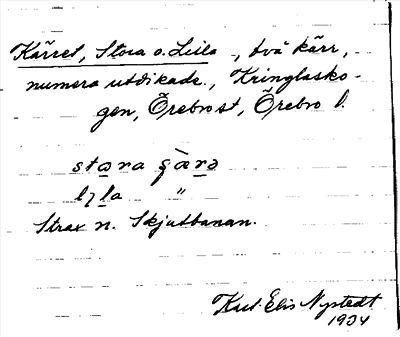 Kärret, Stora o. Lilla -, två kärr,
numera utdikade., Kringlasko-
gen, Örebro st, Örebro l.
Strax n. Skjutbanan.
Karl Elis Nystedt
1934